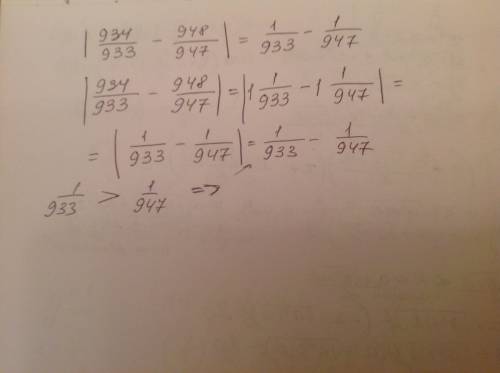 | 934/933 - 948/947 | = 1/933 - 1/947
| 934/933 - 948/947 | = | 1 1/933 - 1 1/947 | =
= | 1/933 - 1/947 | = 1/933 - 1/947
1/933 > 1/947 =>